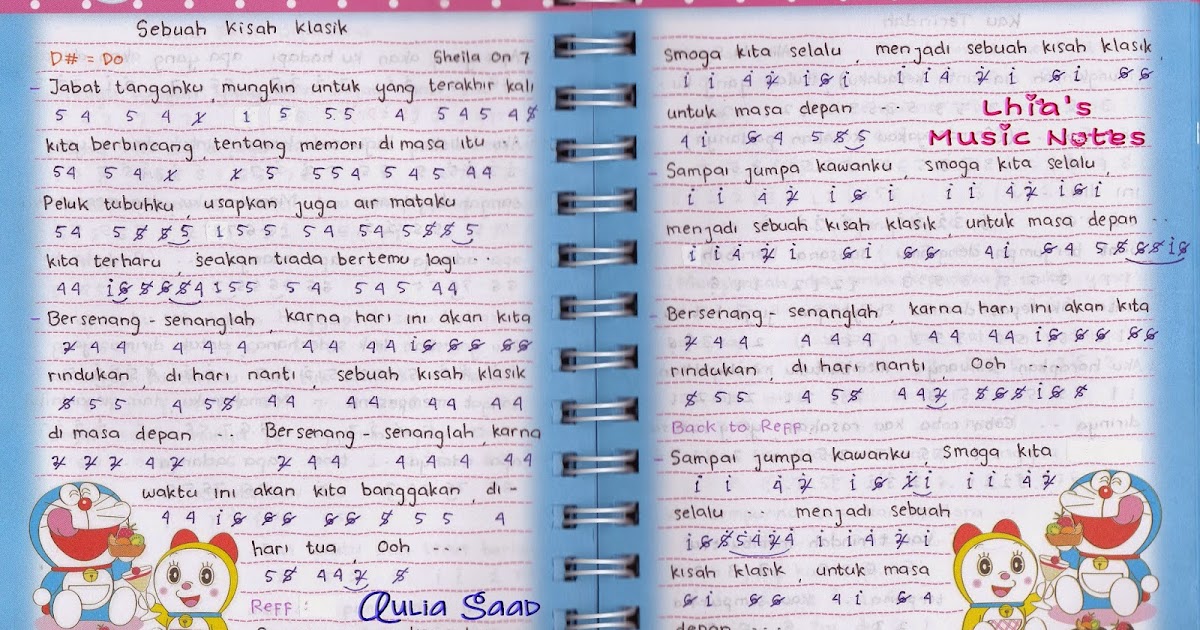 Sebuah Kisah Klasik
D# = Do Sheila On 7
- Jabat tanganku, mungkin untuk yang terakhir kali
5 4 5 4 1̸ 1 5 5 5 4 5 4 5 4 6̸
kita berbincang, tentang memori di masa itu
5 4 5 4 1̸ 1̸ 5 5 5 4 5 4 5 4 4
Peluk tubuhku, usapkan juga air mataku
5 4 5 6̸ 6̸ 5 1 5 5 5 4 5 4 5 6̸ 6̸ 5
kita terharu, seakan tiada bertemu lagi ..
4 4 i 6̸ 6̸ 6̸ 6̸ 4 1 5 5 5 4 5 4 5 4 4
- Bersenang - senanglah, karna hari ini akan kita
2̸ 4 4 4 4 4 4 4 4 4 i 6̸ 6̸ 6̸ 6̸ 6̸
rindukan, di hari nanti, sebuah kisah klasik
6̸ 5 5 4 5 6̸ 4 4 4 4 4 4 4 4
di masa depan ... Bersenang - senanglah, karna
2̸ 2̸ 2̸ 4 2̸ 2̸ 4 4 4 4 4 4 4 4
waktu ini akan kita banggakan, di -
4 4 i 6̸ 6̸ 6̸ 6̸ 6̸ 6̸ 5 5 4
hari tua, Ooh ...
5 6̸ 4 4 2̸ 6̸
Reff :
Aulia Saad
Smoga kita selalu, menjadi sebuah kisah klasik
i i 4 2̸ i 6̸ i i i 4 2̸ i 6̸ i 6̸ 6̸
untuk masa depan ...
4 i 6̸ 4 5 6̸ 5
Lhia's
Music Notes
- Sampai jumpa kawanku, smoga kita selalu,
i i 4 2̸ i 6̸ i i i 4 2̸ i 6̸ i
menjadi sebuah kisah klasik untuk masa depan ...
i i 4 2̸ i 6̸ i 6̸ 6̸ 4 i 6̸ 4 5 6̸ 6̸ 6̸ i 6̸
- Bersenang - senanglah, karna hari ini akan kita
2̸ 4 4 4 4 4 4 4 4 4 i 6̸ 6̸ 6̸ 6̸ 6̸
rindukan, di hari nanti, Ooh
6̸ 5 5 4 5 6̸ 4 4 2̸ 6̸ 6̸ 6̸ i 6̸ 6̸
Back to Reff
- Sampai jumpa kawanku, smoga kita
i i 4 2̸ i 6̸ 1̸ i i i 4 2̸
selalu ... menjadi sebuah
i 6̸ 6̸ 5 4 2̸ 4 i i 4 2̸ i
kisah klasik, untuk masa
6̸ i 6̸ 6̸ 4 i 6̸ 4
depan ....